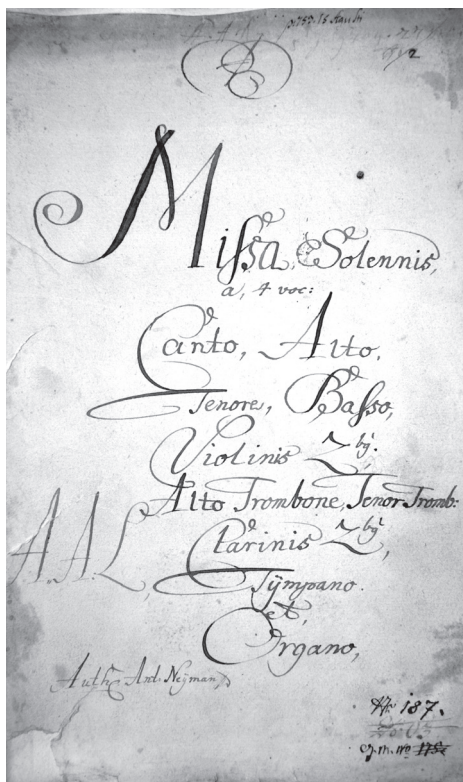 Missa Solennis,
a, 4 voc:
Canto, Alto,
Tenore, Basso,
Violinis 2bq.
Alto Trombone, Tenor Tromb:
A.A.L. Clarinis 2bq,
Tÿmpano.
et,
Organo,
Auth: Ant. Neÿman,
Nr 187.